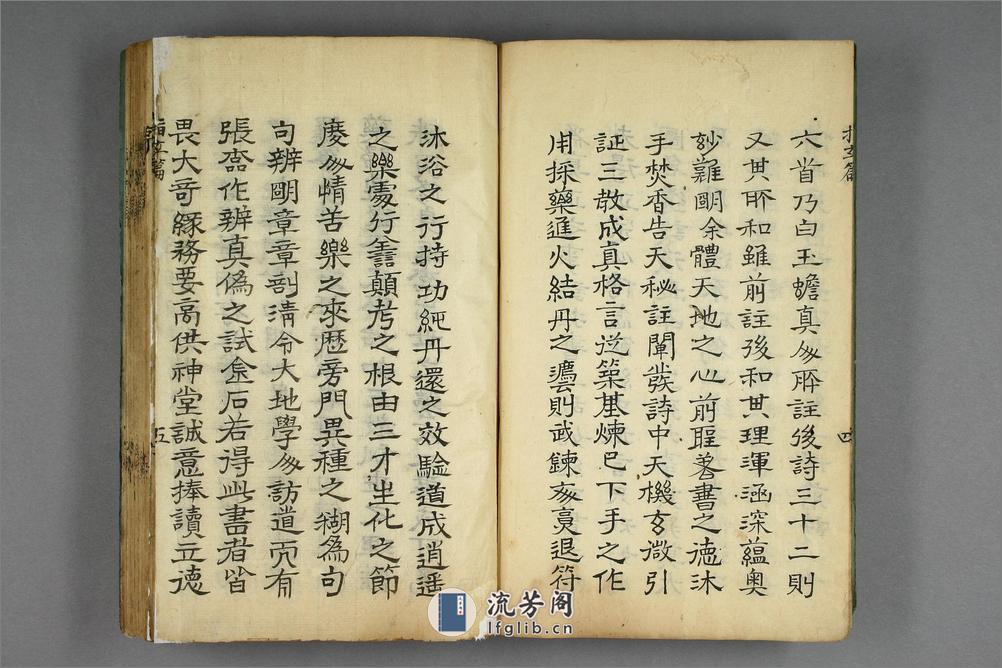 六首乃白玉蟾真人所註後詩三十二則
又其所和雖前註後和其理渾涵深蘊奧
妙難明余體天地之心前聖著書之德沐
手焚香告天秘註闡發詩中天機玄微引
証三教成真格言從築基煉己下手之作
用採藥進火結丹之 則武鍊 烹退符
四
沐浴之行持功純丹還之效驗道成逍遥
之樂處行善顛 之根由三才生化之節
度人情苦樂之來歷旁門異種之糊為句
句辨明章章剖清令大地學人訪道而有
張 作辨真偽之試金石若得此書者皆
畏大哥緣務要高供神堂誠意捧讀立德
指玄篇
五
流芳阁
lfglib.cn